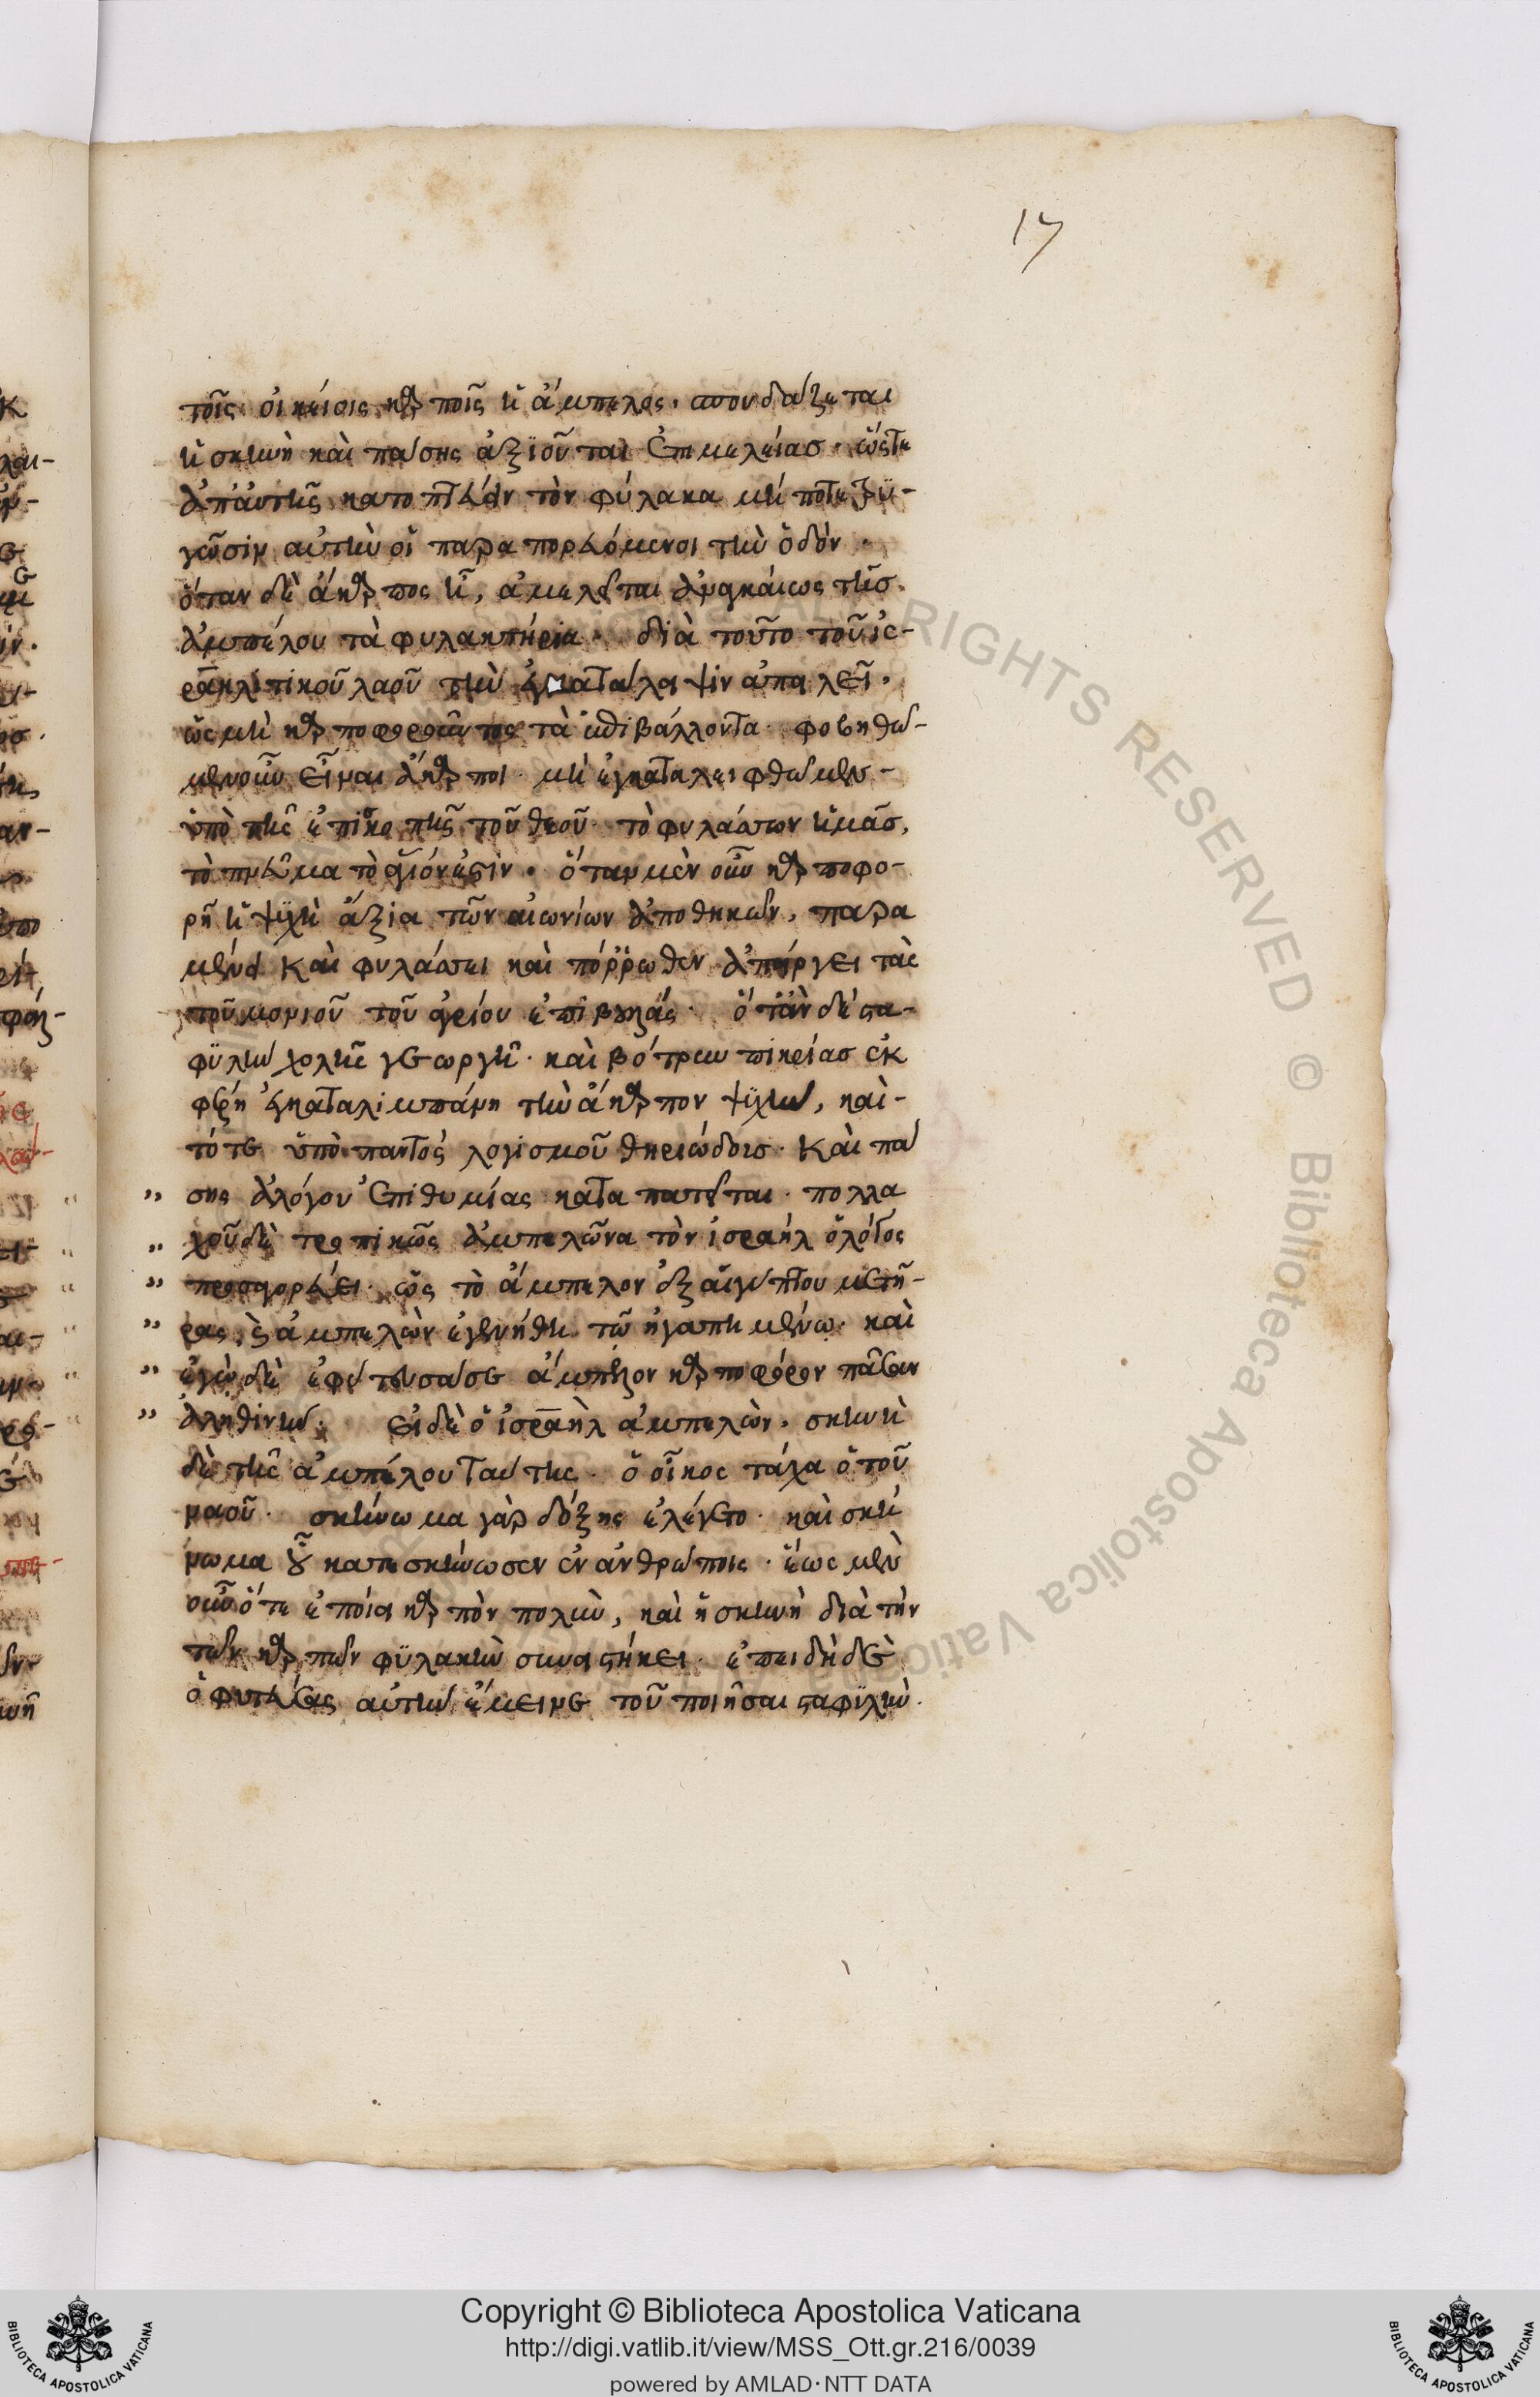 17
τοῖς οἰκείοις καρποῖς ἡ ἄμπελος. σπουδάζεται
ἡ σκηνὴ καὶ πάσης ἀξιοῦται ἐπιμελείας. ὥστε
ἀπ' αὐτῆς κατοπτεύειν τὸν φύλακα μή ποτε τρυ-
γῶσιν αὐτὴν οἱ παραπορευόμενοι τὴν ὁδόν.
ὅταν δὲ ἄκαρπος ᾖ, ἀμελεῖται ἀναγκαίως τῆς
ἀμπέλου τὰ φυλακτήρια. διὰ τοῦτο τοῦ ἰσ-
ραηλιτικοῦ λαοῦ τὴν ἐγκατάλειψιν ἀπειλεῖ.
ὡς μὴ καρποφοροῦντος τὰ ἐπιβάλλοντα. φοβηθῶ-
μεν οὖν εἶναι ἄκαρποι. μὴ ἐγκαταλειφθῶμεν
ὑπὸ τῆς ἐπισκοπῆς τοῦ θεοῦ. τὸ φυλάσσων ἡμᾶς,
τὸ πνεῦμα τὸ ἅγιόν ἐστιν. ὅταν μὲν οὖν καρποφο-
ρῇ ἡ ψυχὴ ἄξια τῶν αἰωνίων ἀποθηκῶν, παρα
μένει καὶ φυλάσσει καὶ πόρρωθεν ἀπείργει τὰς
τοῦ μονιοῦ τοῦ ἀγρίου ἐπιβουλάς. ὅταν δὲ στα-
φυλὴν χολῆς γεωργῇ. καὶ βότρυν πικρίας ἐκ
φέρῃ ἐγκαταλιμπάνει τὴν ἄκαρπον ψυχήν, καὶ
τότε ὑπὸ παντὸς λογισμοῦ θηριώδους. καὶ πά
" σης ἀλόγου ἐπιθυμίας καταπατεῖται. πολλα
" χοῦ δὲ τροπικῶς ἀμπελῶνα τὸν ἰσραὴλ ὁ λόγος
" προσαγορεύει. ὡς τὸ ἄμπελον ἐξ αἰγύπτου μετῆ-
" ρας, ϛ ἀμπελὼν ἐγενήθη τῷ ἠγαπημένῳ. καὶ
" ἐγὼ δὲ ἐφύτευσά σε ἄμπελον καρποφόρον πᾶσαν
" ἀληθινήν. εἰ δὲ ὁ ἰσραὴλ ἀμπελών. σκηνὴ
δὲ τῆς ἀμπέλου ταύτης. ὁ οἶκος τάχα ὁ τοῦ
ναοῦ. σκήνωμα γὰρ δόξης ἐλέγετο. καὶ σκή
νωμα οὗ κατεσκήνωσεν ἐν ἀνθρώποις. ἕως μὲν
οὖν ὅτε ἐποίει καρπὸν πολύν, καὶ ἡ σκηνὴ διὰ τὴν
τῶν καρπῶν φυλακὴν συνεστήκει. ἐπειδὴ δὲ
ὁ φυτεύσας αὐτὴν ἔμεινε τοῦ ποιῆσαι σταφυλήν.
Copyright © Biblioteca Apostolica Vaticana
http://digi.vatlib.it/view/MSS_Ott.gr.216/0039
powered by AMLAD·NTT DATA